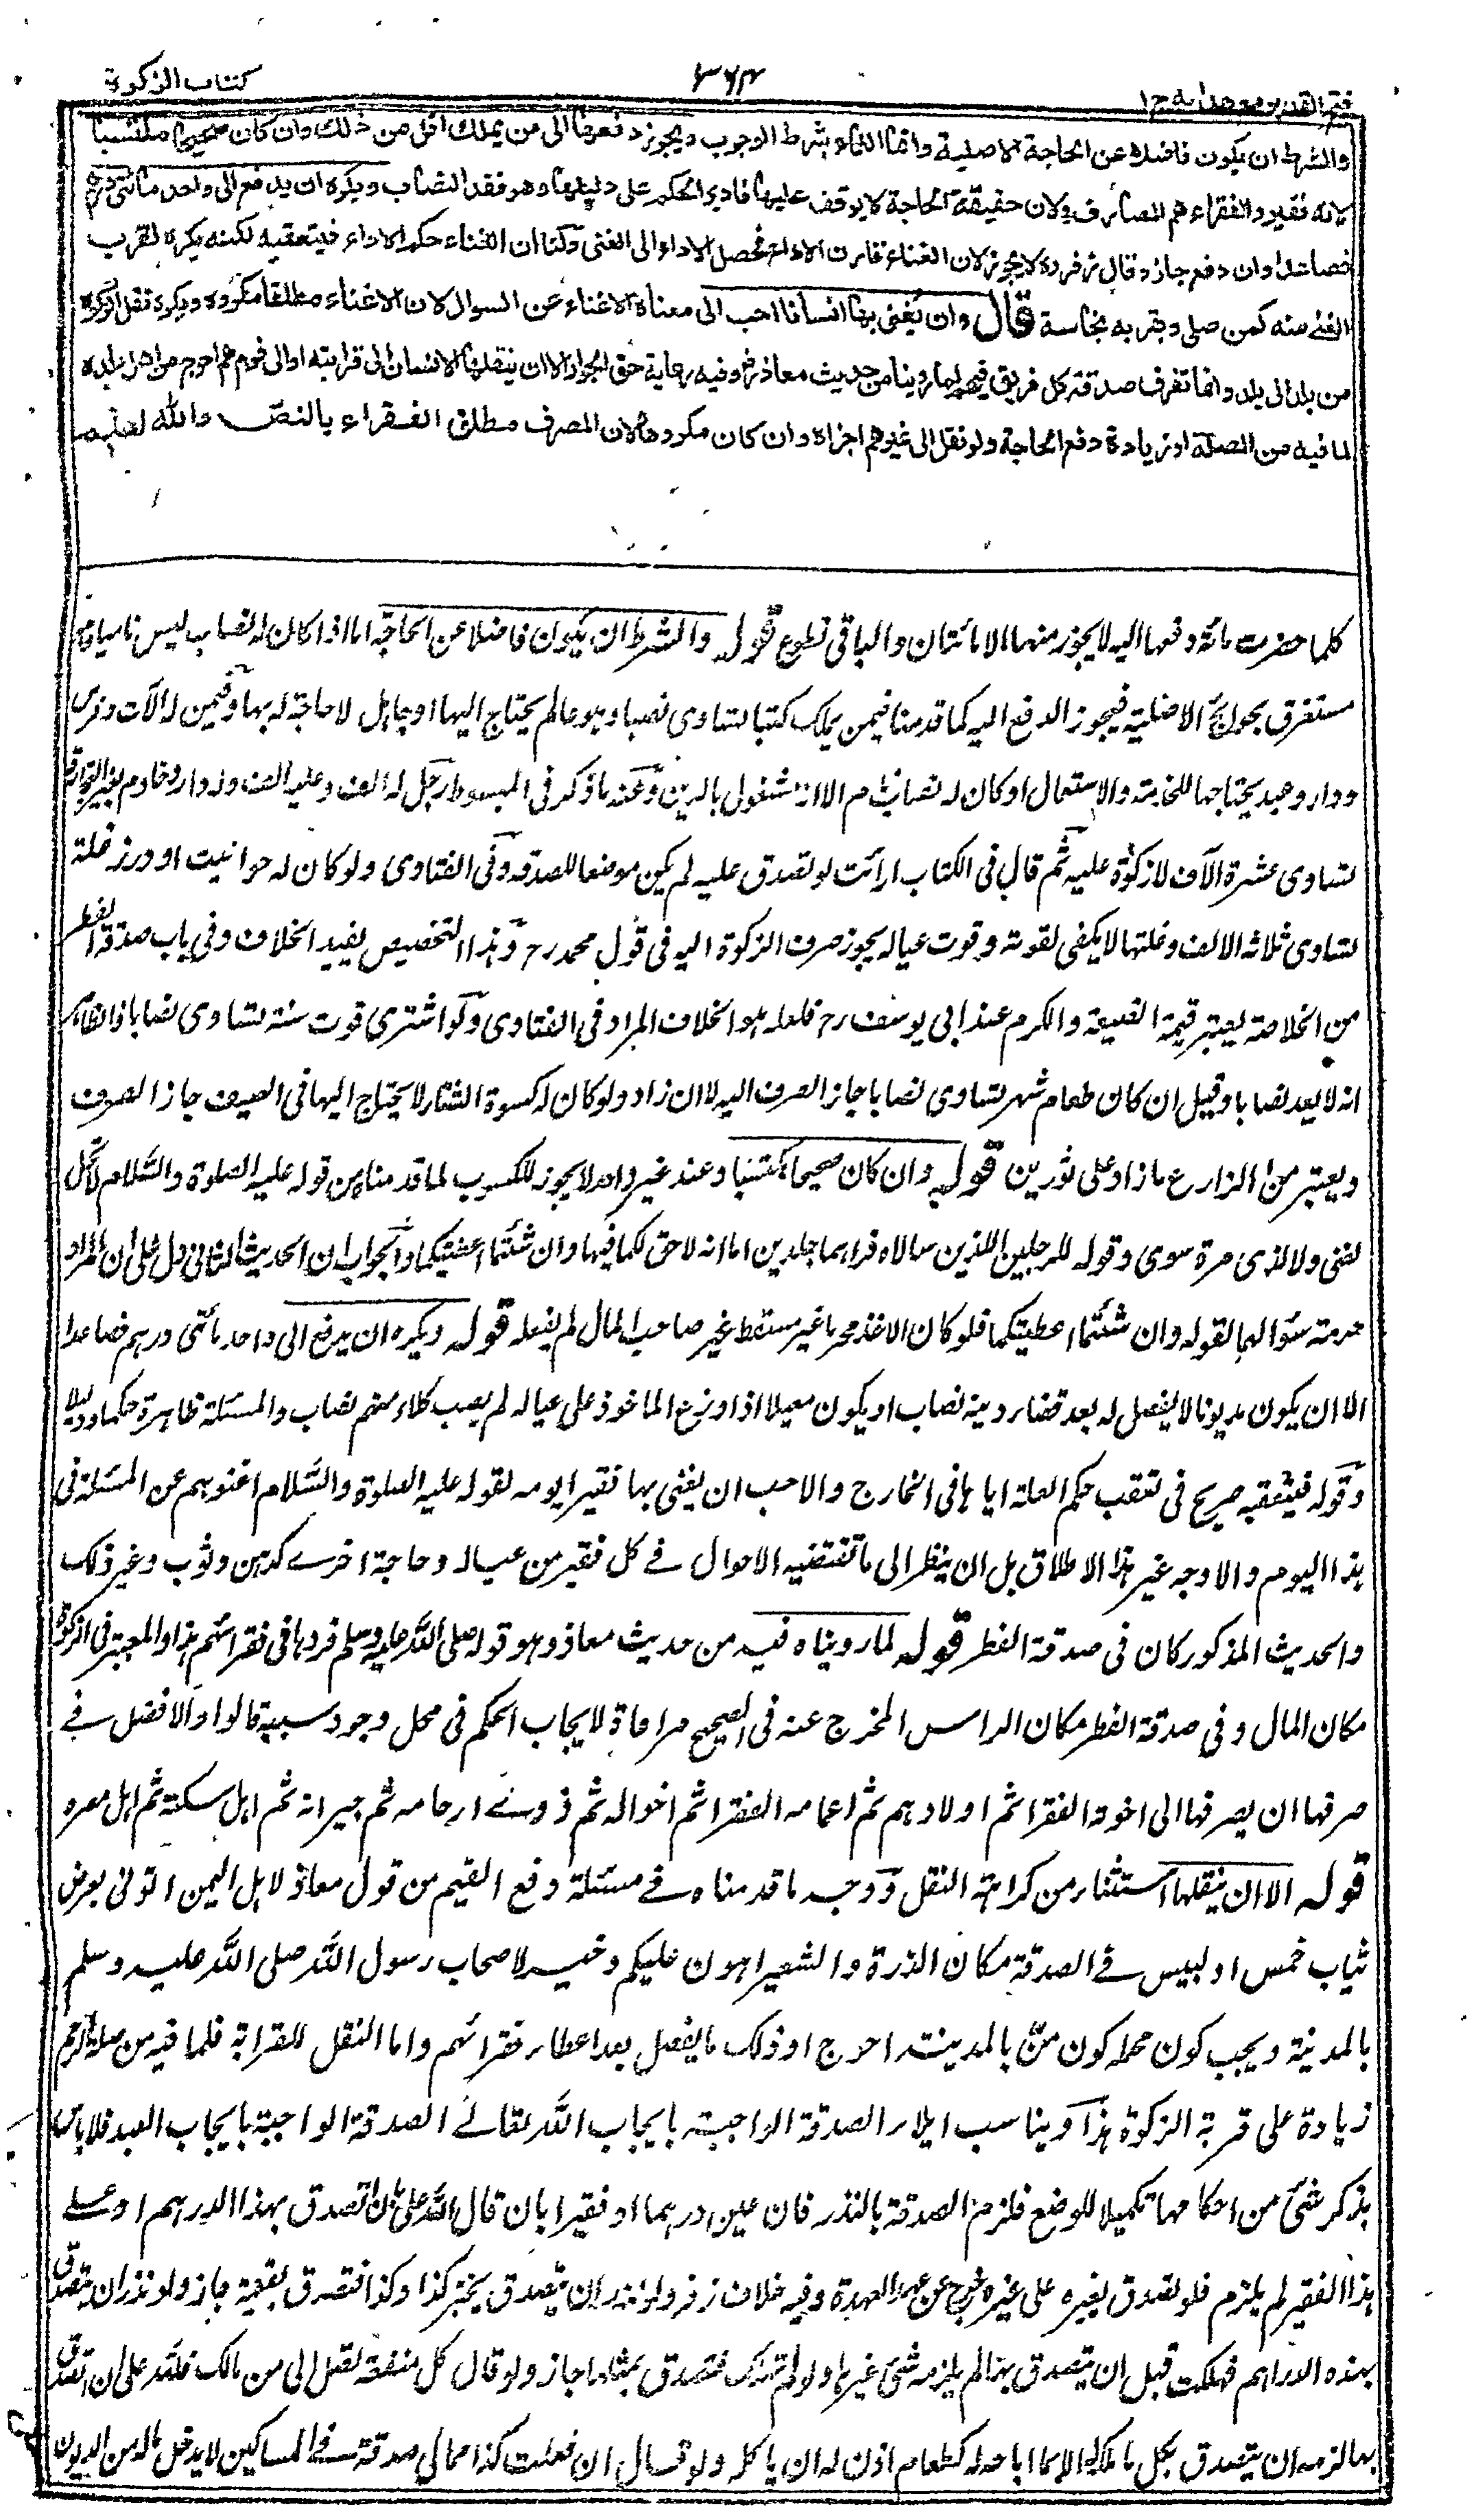 كتاب الزكوة
٣٦٤
فتح القدير مع هدايه ج ١
والشرط ان يكون فاضلا عن الحاجة الاصلية وانما النماء شرط الوجوب ويجوز دفعها الى من يملك اقل من ذلك وان كان صحيحا مكتسبا
لانه فقير والفقراء هم المصارف ولان حقيقة الحاجة لا يوقف عليها فادير الحكم على دليلها وهو فقد النصاب ويكره ان يدفع الى واحد مائتى درهم
فصاعدا وان دفع جاز وقال زفر ره لا يجوز لان الغناء قارن الاداء فحصل الاداء الى الغنى ولنا ان الغناء حكم الاداء فيتعقبه لكنه يكره لقرب
الغنى منه كمن صلى وبقربه نجاسة قال وان يغنى بها انسانا احب الى معناه الاغناء عن السوال لان الاغناء مطلقا مكروه ويكره نقل الزكوة
من بلد الى بلد وانما تفرق صدقة كل فريق فيهم لما روينا من حديث معاذ رض وفيه رعاية حق الجوار الا ان ينقلها الانسان الى قرابته او الى قوم هم احوج من اهل بلده
لما فيه من الصلة او زيادة دفع الحاجة ولو نقل الى غيرهم اجزاه وان كان مكروها لان المصرف مطلق الفقراء بالنص والله اعلم
كلما حضرت مائة دفعها اليه لا يجوز منها الا مائتان والباقى تطوع قوله والشرط ان يكون فاضلا عن الحاجة اما اذا كان له نصاب ليس ناميا وهو
مستغرق بحوائجه الاصلية فيجوز الدفع اليه كما قدمنا فيمن يملك كتبا تساوى نصبا وهو عالم يحتاج اليها او جاهل لا حاجة له بها وفيمن له آلات وفرس
ودار وعبد يحتاجها للخدمة والاستعمال او كان له نصاب نام الا انه مشغول بالدين وعنه ما ذكر فى المبسوط رجل له الف وعليه الف وله دار وخادم لغير التجارة
تساوى عشرة آلاف لا زكوة عليه ثم قال فى الكتاب ارأيت لو تصدق عليه لم يكن موضعا للصدقه وفى الفتاوى ولو كان له حوانيت او دور غلة
تساوى ثلاثة الالف وغلتها لا يكفى لقوته وقوت عياله يجوز صرف الزكوة اليه فى قول محمد رح وهذا التخصيص يفيد الخلاف وفى باب صدقة الفطر
من الخلاصة يعتبر قيمة الضيعة والكرم عند ابى يوسف رح فلعله هو الخلاف المراد فى الفتاوى ولو اشترى قوت سنة تساوى نصابا فالظاهر
انه لا يعد نصابا وقيل ان كان طعام شهر تساوى نصابا جاز الصرف اليه لا ان زاد ولو كان له كسوة الشتاء لا يحتاج اليها فى الصيف جاز الصرف
ويعتبر من الزارع ما زاد على ثورين قوله وان كان صحيحا مكتسبا وعند غير واحد لا يجوز للكسوب لما قدمناه من قوله عليه الصلوة والسلام لا تحل
لغنى ولا لذى مرة سوى وقوله للرجلين اللذين سالاه فراهما جلدين اما انه لا حق لكما فيها وان شئتما اعطيتكما والجواب ان الحديث الثانى دل على ان المراد
حرمة سؤالهما لقوله وان شئتما اعطيتكما فلو كان الاخذ محرما غير مسقط عن صاحب المال لم يفعله قوله ويكره ان يدفع الى واحد مائتى درهم فصاعدا
الا ان يكون مديونا لا يفضل له بعد قضاء دينه نصاب او يكون معيلا اذا وزع الماخوذ على عياله لم يصب كلا منهم نصاب والمسئلة ظاهرة حكما ودليلا
وقوله فيتعقبه صريح فى تعقب حكم العلة اياها فى الخارج والاحب ان يغنى بها فقيرا يومه لقوله عليه الصلوة والسلام اغنوهم عن المسئلة فى
هذا اليوم والاوجه غير هذا الاطلاق بل ان ينظر الى ما تقتضيه الاحوال فى كل فقير من عيال وحاجة اخرى كدهن وثوب وغير ذلك
والحديث المذكور كان فى صدقة الفطر قوله لما رويناه فيه من حديث معاذ وهو قوله صلى الله عليه وسلم فردها فى فقرائهم هذا والمعتبر فى الزكوة
مكان المال وفى صدقة الفطر مكان الراس المخرج عنه فى الصحيح مراعاة لايجاب الحكم فى محل وجود سببه قالوا والافضل فى
صرفها ان يصرفها الى اخوته الفقرا ثم اولادهم ثم اعمامه الفقرا ثم اخواله ثم ذوى ارحامه ثم جيرانه ثم اهل سكنه ثم اهل مصره
قوله الا ان ينقلها استثناء من كراهة النقل ووجهه ما قدمناه فى مسئلة دفع القيم من قول معاذ لاهل اليمن ائتونى بعرض
ثياب خميس او لبيس فى الصدقة مكان الذرة والشعير اهون عليكم وخير لاصحاب رسول الله صلى الله عليه وسلم
بالمدينة ويجب كون محمله كون من بالمدينة احوج او ذلك ما يفضل بعد اعطاء فقرائهم واما النقل للقرابة فلما فيه من صلة الرحم
زيادة على قربة الزكوة هذا ويناسب ايلاء الصدقة الواجبة بايجاب الله تعالى الصدقة الواجبة بايجاب العبد فلا باس
بذكر شئ من احكامها تكميلا للوضع فلزم الصدقة بالنذر فان عين درهما او فقيرا بان قال لله على ان اتصدق بهذا الدرهم او على
هذا الفقير لم يلزم فلو تصدق بغيره على غيره خرج عن العهدة وفيه خلاف زفر ولو نذر ان يتصدق بخبز كذا وكذا فتصدق بقيمة جاز ولو نذر ان يتصدق
بهذه الدراهم فهلكت قبل ان يتصدق بها لم يلزمه شئ غيرها ولو لم تهلك فتصدق بمثلها جاز ولو قال كل منفعة تصل الى من مالك فلله على ان اتصدق
بها لزمه ان يتصدق بكل ما ملكه الا بما اباحه له كطعام اذن له ان ياكله ولو قال ان فعلت كذا فمالى صدقة فى المساكين لا يدخل ماله من الديون